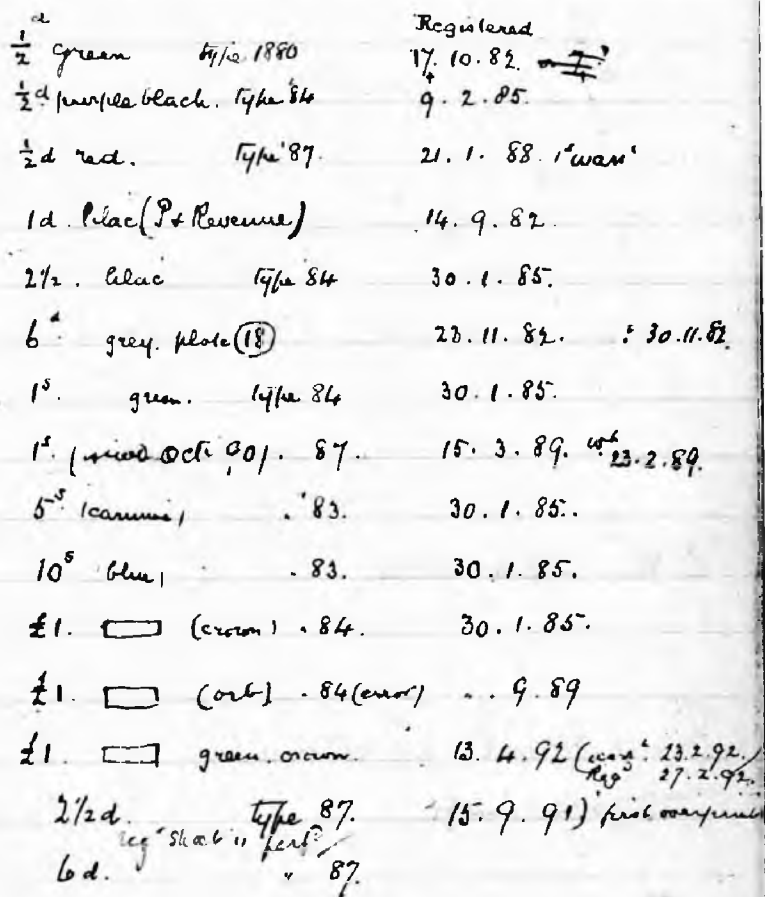 Registered
½d green type 1880 17.10.82.
½d purple black. type '84 9.2.85.
½d red. Type '87. 21.1.88.
1d. lilac (P & Revenue) 14.9.82.
2½. lilac type 84 30.1.85.
6d grey. plate (18) 23.11.82. 30.11.82
1s. green. type 84 30.1.85.
1s. Oct. 90). 87. 15.3.89. 23.2.89.
5s. (carmine) '83. 30.1.85.
10s blue, 83. 30.1.85.
£1. (crown). 84. 30.1.85.
£1. (orb) . 84 (error) .. 9.89
£1. green. crown. 13.4.92 ( 23.2.92.
Reg 27.2.92.
2½d. type 87. 15.9.91) first
reg Sheet
6d. " 87.